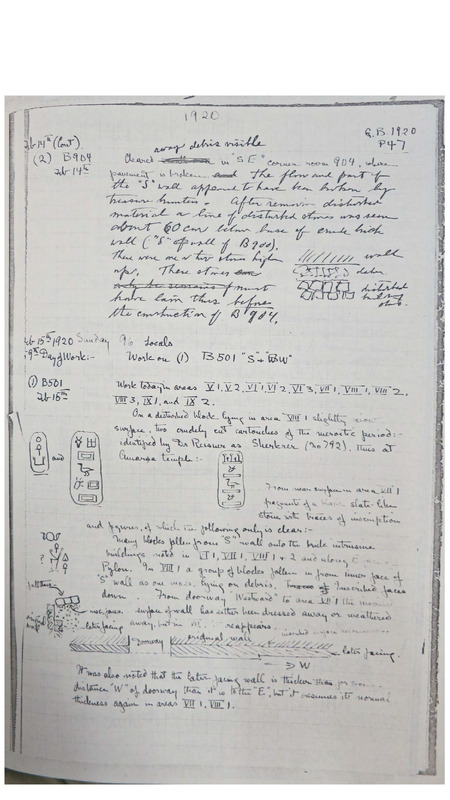 1920
G.B. 1920
P47
Feb 14th (Cont)
away debris visible
(2) B904
Feb 14th
Cleared in "SE" corner room 904, where
pavement is broken and The floor and part of
the "S" wall appeared to have been broken by
treasure hunters. After removing disturbed
material a line of disturbed stones was seen
about 60 cm below base of crude brick
wall ("S" of wall of B 900).
There were one or two stones higher
up. These stones
must
have lain thus before
the construction of B 904.
wall
debris
disturbed
Feb 15th 1920 Sunday 96 Locals
9th Day of Work:- Work on (1) B501 "S" + "W"
(1) B501
Feb 15th
Work today in areas V 1, V 2, VI 1, VI 2, VI 3, VII 1, VIII 1, VIII 2,
VIII 3, IX 1, and IX 2.
On a detached block lying in area VIII 1 slightly
surface, two crudely cut cartouches of the meroitic period:-
identified by Dr Reisner as Sherkerer (no 792), thus at
Amara temple:-
and
From near surface in area VII 1
fragments of a hard slate-like
stone with traces of inscription
and figures, of which the following only is clear:-
Many blocks fallen from "S" wall onto the brick intrusive
buildings noted in VI 1, VII 1, VIII 1 + 2 and along E
Pylon. In VIII 1 a group of blocks fallen in from inner face of
"S" wall as one mass, lying on debris. Inscribed faces
down. From doorway "Westward" to area VII 1 the
surface of wall has either been dressed away or weathered
away, but in reappears.
?
later facing
doorway
original wall
later facing.
W
It was also noted that the later facing wall is thicker for
distance "W" of doorway than it is to the "E", but it assumes its normal
thickness again in areas VII 1, VIII 1.